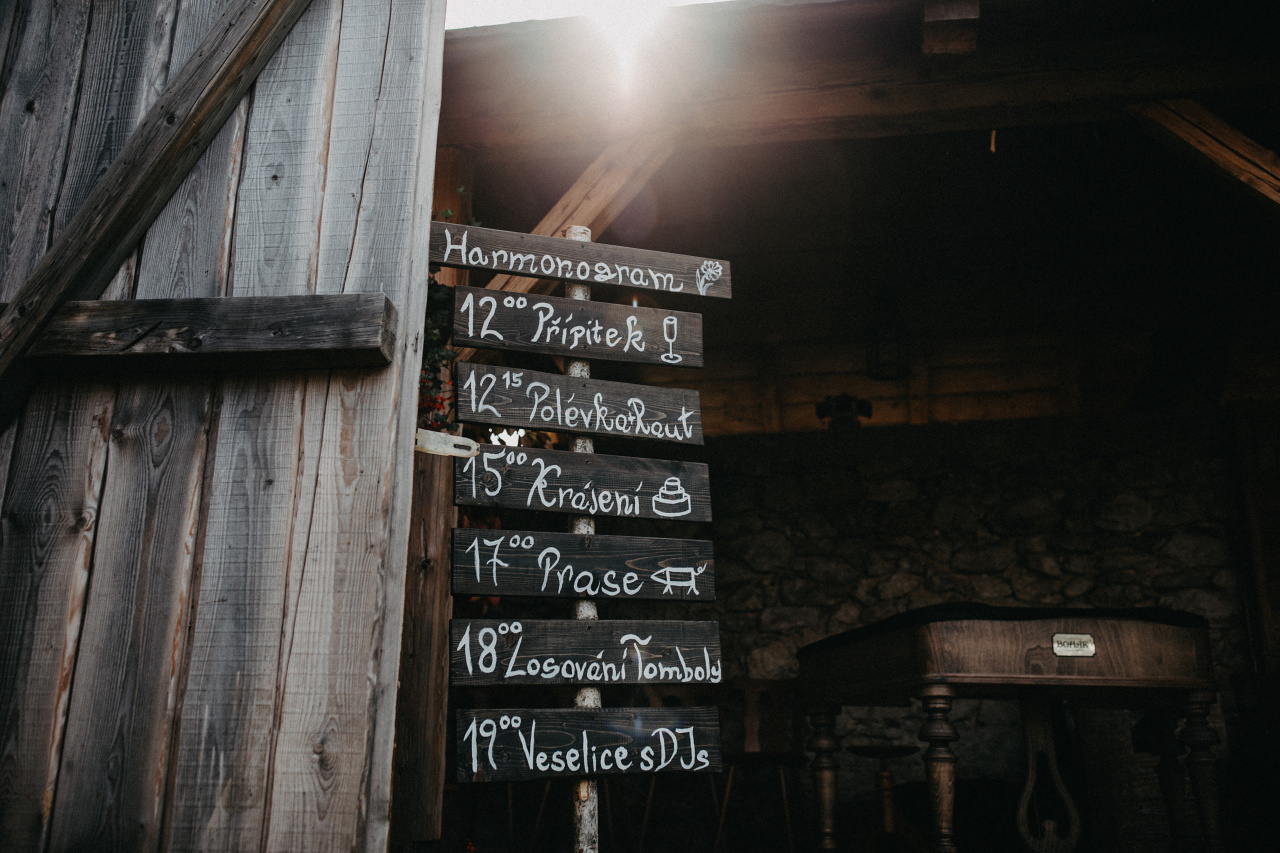 Harmonogram
12⁰⁰ Přípitek
12¹⁵ Polévka+Raut
15⁰⁰ Krájení
17⁰⁰ Prase
18⁰⁰ Losování Tomboly
19⁰⁰ Veselice s DJs